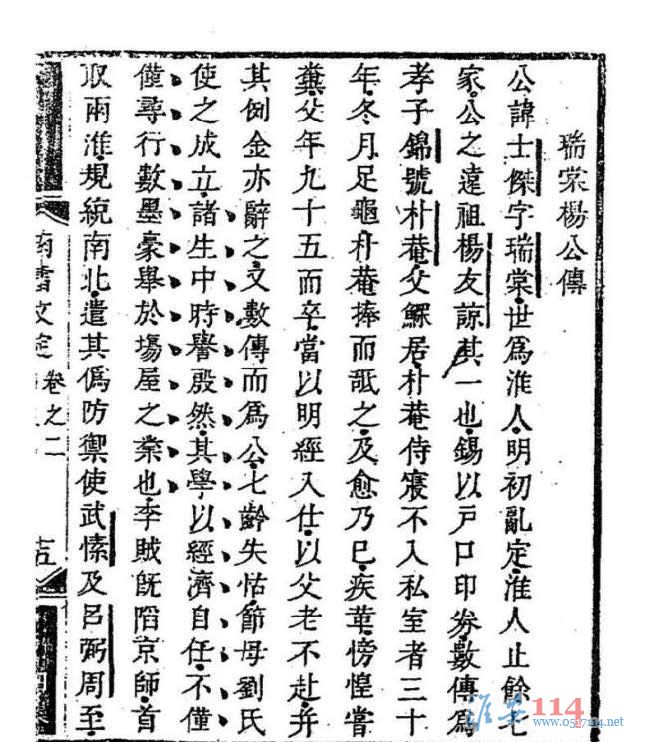 瑞棠楊公傳
公諱士傑字瑞棠世爲淮人明初亂定淮人止餘七
家公之遠祖楊友諒其一也錫以戸口印劵數傳爲
孝子錦號朴菴父鰥居朴菴侍寢不入私室者三十
年冬月足龜朴菴捧而䑛之及愈乃巳疾革傍惶嘗
糞父年九十五而卒當以明經入仕以父老不赴并
其例金亦辭之又數傳而爲公七齡失怙節母劉氏
使之成立諸生中時譽殷然其學以經濟自任不僅
僅尋行數墨豪舉於塲屋之業也李賊旣䧟京師首
取兩淮規統南北遣其僞防禦使武愫及呂弼周至
卷之二
淮安114
www.0517114.net